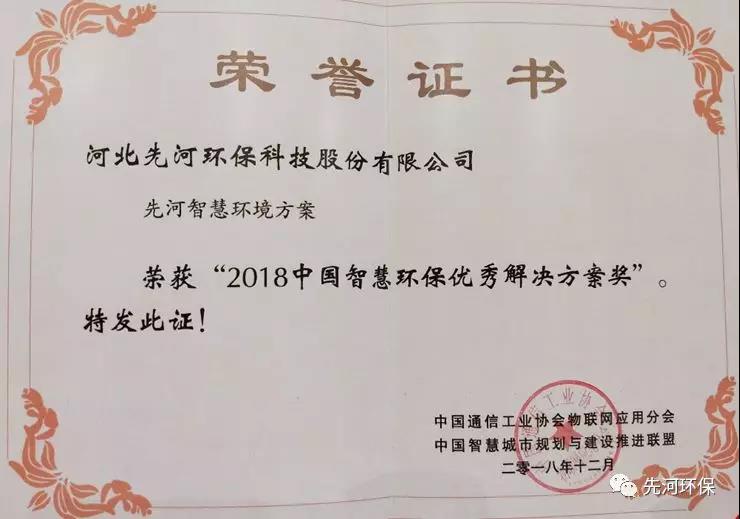 荣誉证书
河北先河环保科技股份有限公司
先河智慧环境方案
荣获“2018中国智慧环保优秀解决方案奖”。
特发此证！
中国通信工业协会物联网应用分会
中国智慧城市规划与建设推进联盟
二零一八年十二月
先河环保